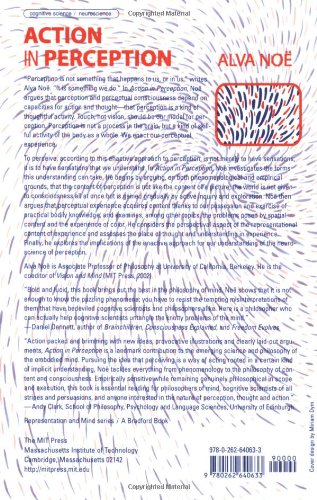 cognitive science / neuroscience
ACTION
IN PERCEPTION
ALVA NOË
"Perception is not something that happens to us, or in us," writes
Alva Noë. "It is something we do." In Action in Perception, Noë
argues that perception and perceptual consciousness depend on
capacities for action and thought—that perception is a kind of
thoughtful activity. Touch, not vision, should be our model for per-
ception. Perception is not a process in the brain, but a kind of skil-
ful activity of the body as a whole. We enact our perceptual
experience.
To perceive, according to this enactive approach to perception, is not merely to have sensations;
it is to have sensations that we understand. In Action in Perception, Noë investigates the forms
this understanding can take. He begins by arguing, on both phenomenological and empirical
grounds, that the content of perception is not like the content of a picture; the world is not given
to consciousness all at once but is gained gradually by active inquiry and exploration. Noë then
argues that perceptual experience acquires content thanks to our possession and exercise of
practical bodily knowledge, and examines, among other topics, the problems posed by spatial
content and the experience of color. He considers the perspectival aspect of the representational
content of experience and assesses the place of thought and understanding in experience.
Finally, he explores the implications of the enactive approach for our understanding of the neuro-
science of perception.
Alva Noë is Associate Professor of Philosophy at University of California, Berkeley. He is the
coeditor of Vision and Mind (MIT Press, 2002).
"Bold and lucid, this book brings out the best in the philosophy of mind. Noë shows that it is not
enough to know the puzzling phenomena; you have to resist the tempting misinterpretations of
them that have bedeviled cognitive scientists and philosophers alike. Here is a philosopher who
can actually help cognitive scientists untangle the knotty problems of the mind."
—Daniel Dennett, author of Brainchildren, Consciousness Explained, and Freedom Evolves
"Action packed and brimming with new ideas, provocative illustrations and clearly laid-out argu-
ments, Action in Perception is a landmark contribution to the emerging science and philosophy of
the embodied mind. Pursuing the idea that perceiving is a way of acting rooted in a certain kind
of implicit understanding, Noë tackles everything from phenomenology to the philosophy of con-
tent and consciousness. Empirically sensitive while remaining genuinely philosophical in scope
and execution, this book is essential reading for philosophers of mind, cognitive scientists of all
stripes and persuasions, and anyone interested in the nature of perception, thought and action."
—Andy Clark, School of Philosophy, Psychology and Language Sciences, University of Edinburgh
Representation and Mind series / A Bradford Book
The MIT Press
Massachusetts Institute of Technology
Cambridge, Massachusetts 02142
http://mitpress.mit.edu
0-262-64063-3
90000
9 780262 640633
Cover design by Miriam Dym